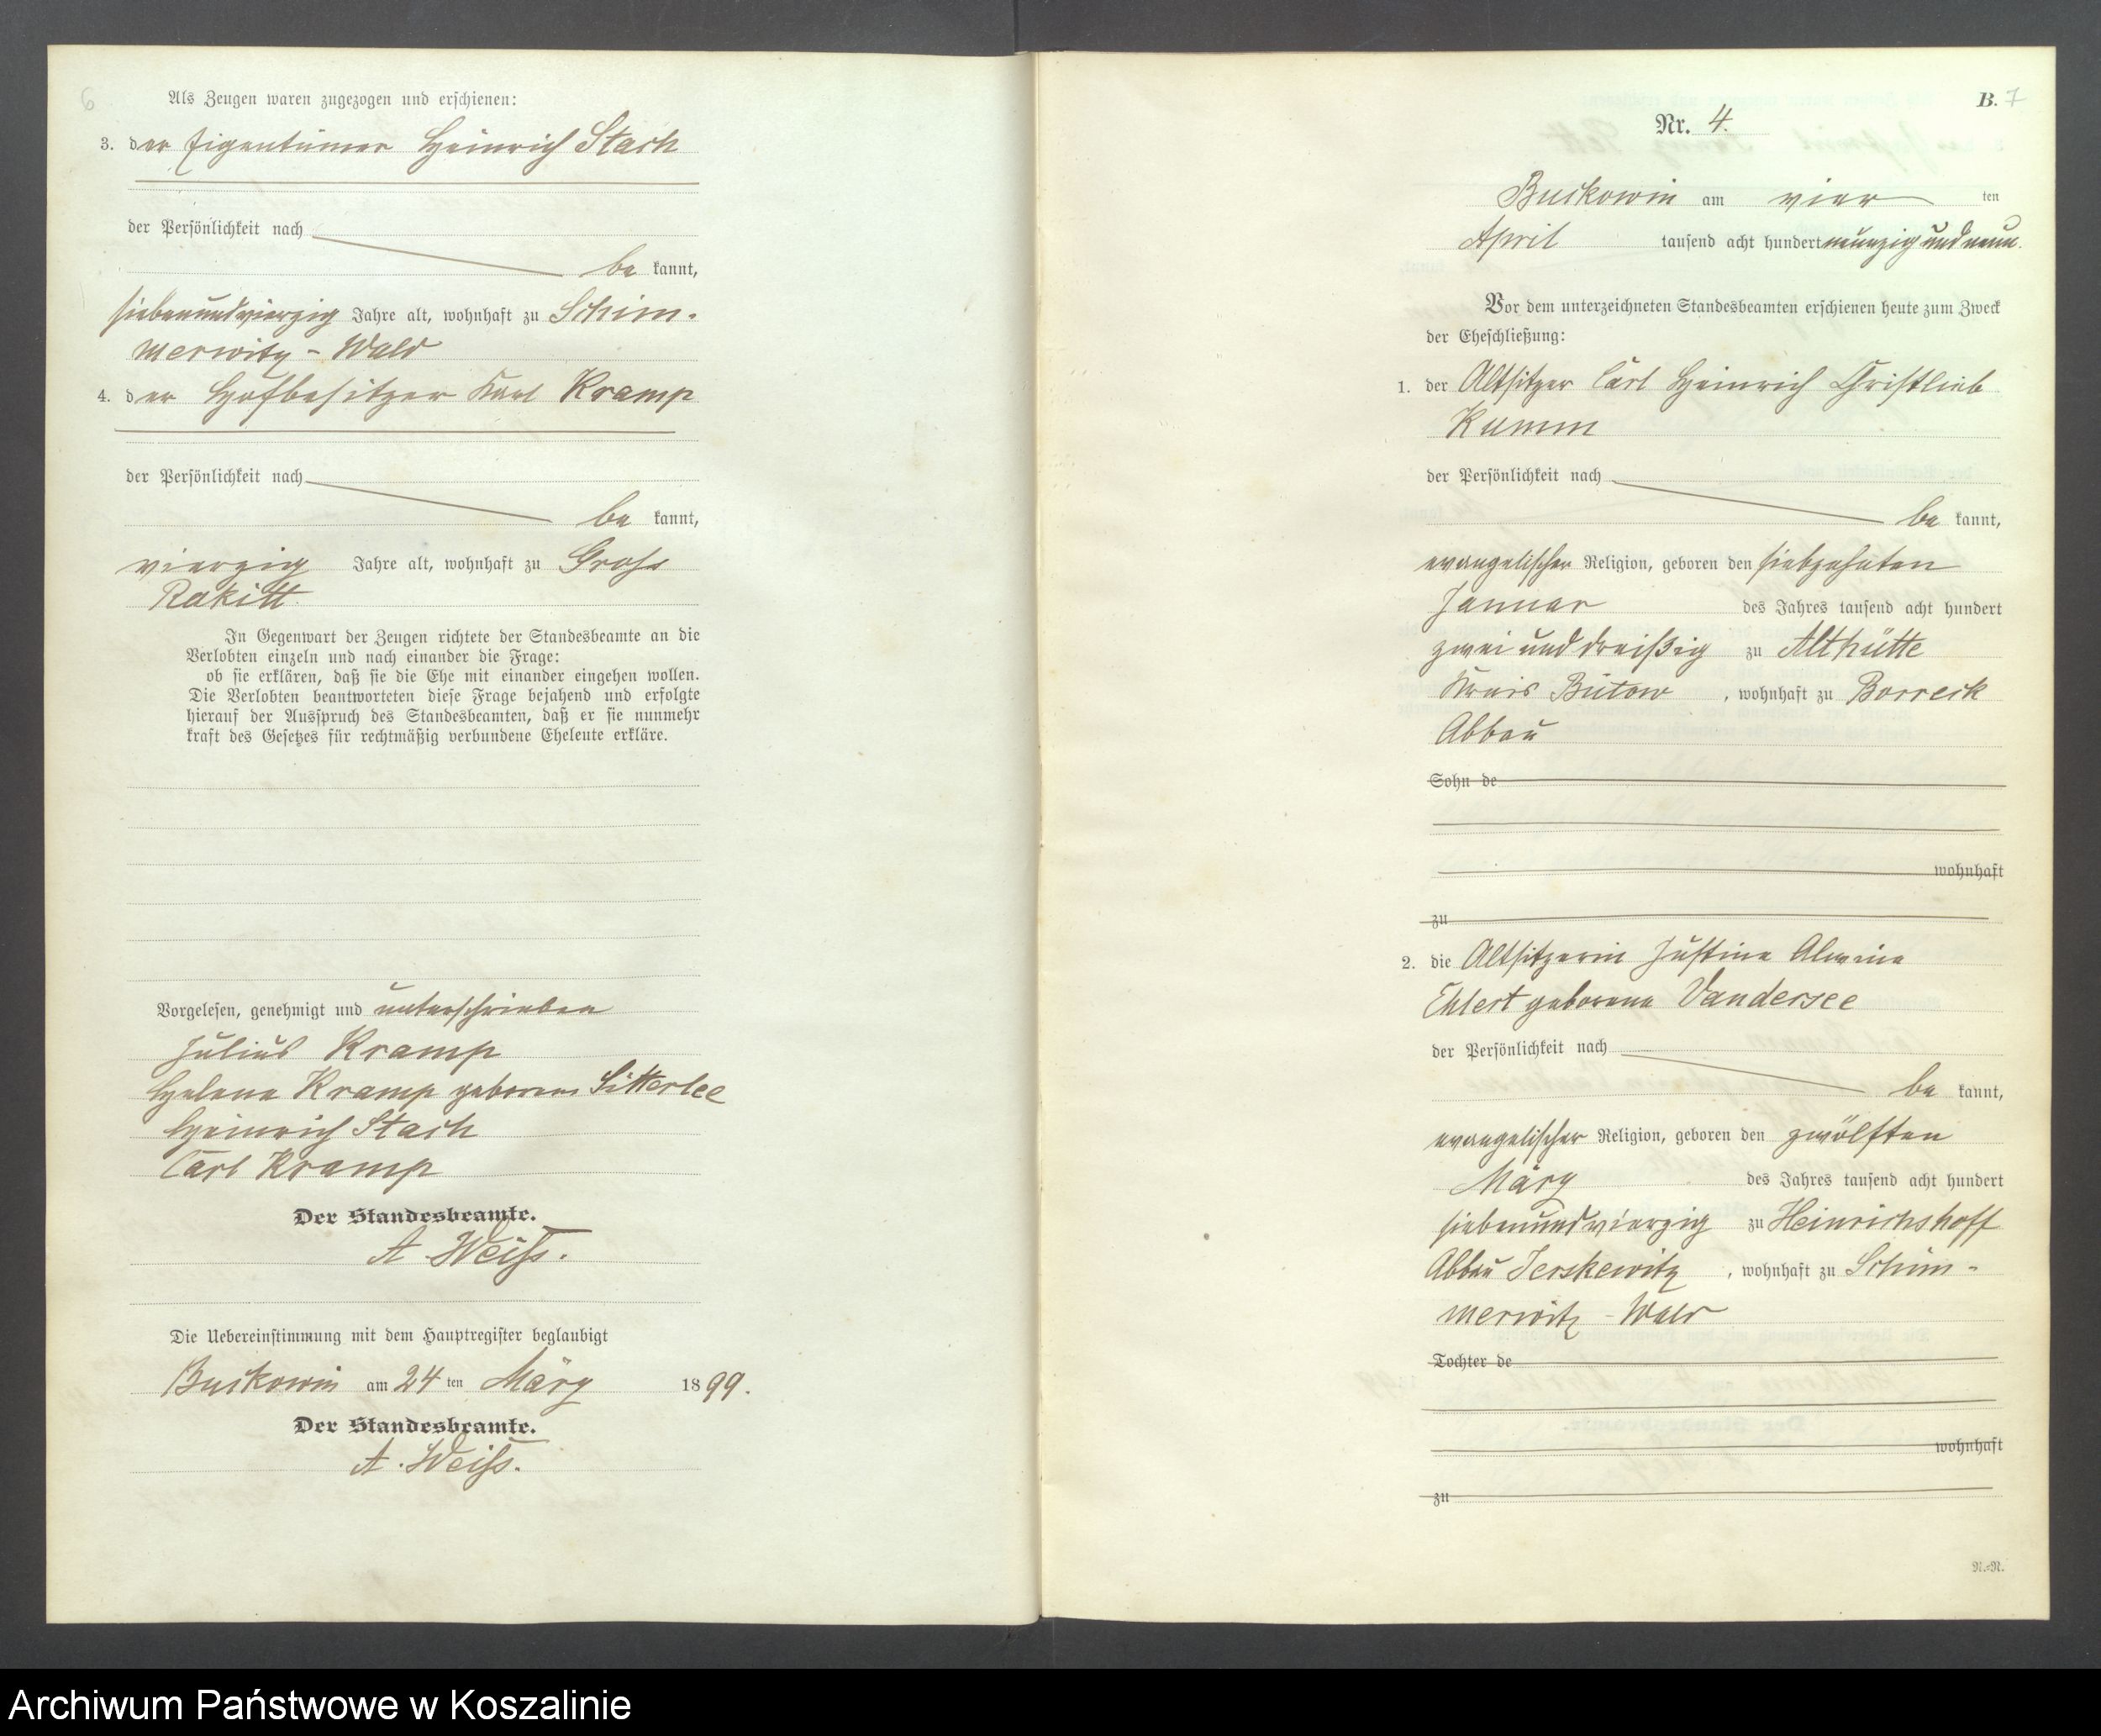 6
Als Zeugen waren zugezogen und erschienen:
3. der Eigentümer Heinrich Stach
der Persönlichkeit nach
be kannt,
siebenundvierzig Jahre alt, wohnhaft zu Schim-
merwitz - Wald
4. der Hofbesitzer Karl Kramp
der Persönlichkeit nach
be kannt,
vierzig Jahre alt, wohnhaft zu Gross
Rakitt.
In Gegenwart der Zeugen richtete der Standesbeamte an die
Verlobten einzeln und nach einander die Frage:
ob sie erklären, daß sie die Ehe mit einander eingehen wollen.
Die Verlobten beantworteten diese Frage bejahend und erfolgte
hierauf der Ausspruch des Standesbeamten, daß er sie nunmehr
kraft des Gesetzes für rechtmäßig verbundene Eheleute erkläre.
Vorgelesen, genehmigt und unterschrieben
Julius Kramp
Helene Kramp geborene Sitterlee
Heinrich Stach
Carl Kramp
Der Standesbeamte.
A. Weiss.
Die Uebereinstimmung mit dem Hauptregister beglaubigt
Buckowin am 24 ten März 1899.
Der Standesbeamte.
A. Weiss.
B. 7
Nr. 4.
Buckowin am vier ten
April tausend acht hundert neunzig und neun.
Vor dem unterzeichneten Standesbeamten erschienen heute zum Zweck
der Eheschließung:
1. der Altsitzer Carl Heinrich Christlieb
Kumm
der Persönlichkeit nach
be kannt,
evangelischer Religion, geboren den siebzehnten
Januar des Jahres tausend acht hundert
zwei und dreißig zu Althütte
Kreis Bütow, wohnhaft zu Borreck
Abbau
Sohn de
wohnhaft
zu
2. die Altsitzerin Justine Alwine
Ehlert geborene Vandersee
der Persönlichkeit nach
be kannt,
evangelischer Religion, geboren den zwölften
März des Jahres tausend acht hundert
siebenundvierzig zu Heinrichshoff
Abbau Jerskewitz, wohnhaft zu Schim-
merwitz - Wald
Tochter de
wohnhaft
zu
N.=N.
Archiwum Państwowe w Koszalinie